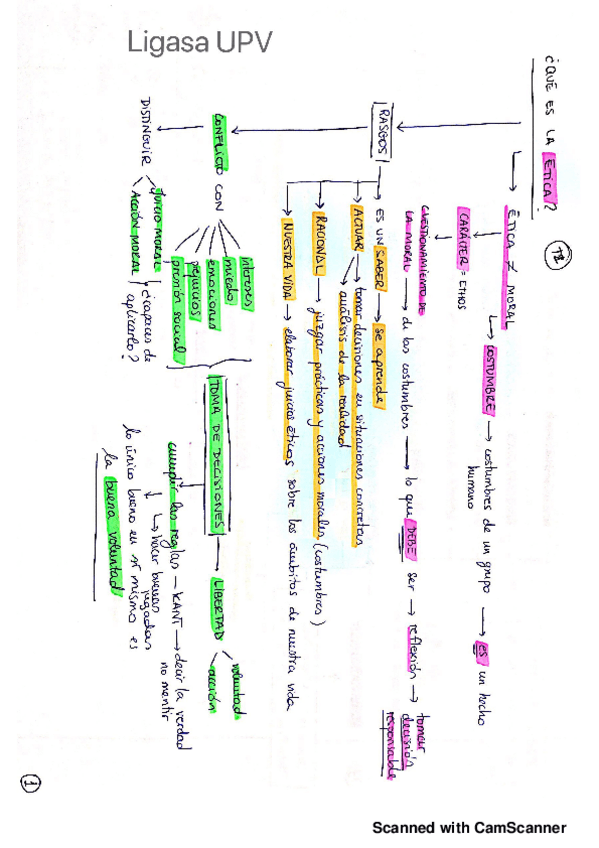 Ligasa UPV
¿QUÉ ES LA ETICA?
ÉTICA ≠ MORAL
COSTUMBRE → costumbres de un grupo humano → es un hecho
CARÁCTER = ETHOS
CUESTIONAMIENTO DE LA MORAL → de las costumbres → lo que DEBE ser → reflexión → tomar decisión responsable
RASGOS
ES UN SABER → se aprende
ACTUAR → tomar decisiones en situaciones concretas
análisis de la realidad
RACIONAL → juzgar prácticas y acciones morales (costumbres)
NUESTRA VIDA → elaborar juicios éticos sobre los ámbitos de nuestra vida
CONFLICTO CON
intereses
miedo
emociones
prejuicios
presión social
TOMA DE DECISIONES → LIBERTAD
voluntad
acción
cumplir las reglas – KANT → decir la verdad
no mentir
↳ hacer buenas jugadas
lo único bueno en sí mismo es
la buena voluntad
DISTINGUIR
Juicio moral
Acción moral
¿capaces de aplicarlo?
1
Scanned with CamScanner